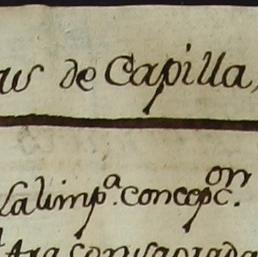 de Capilla,
La limp.ª concepc.on
Ara consagrada